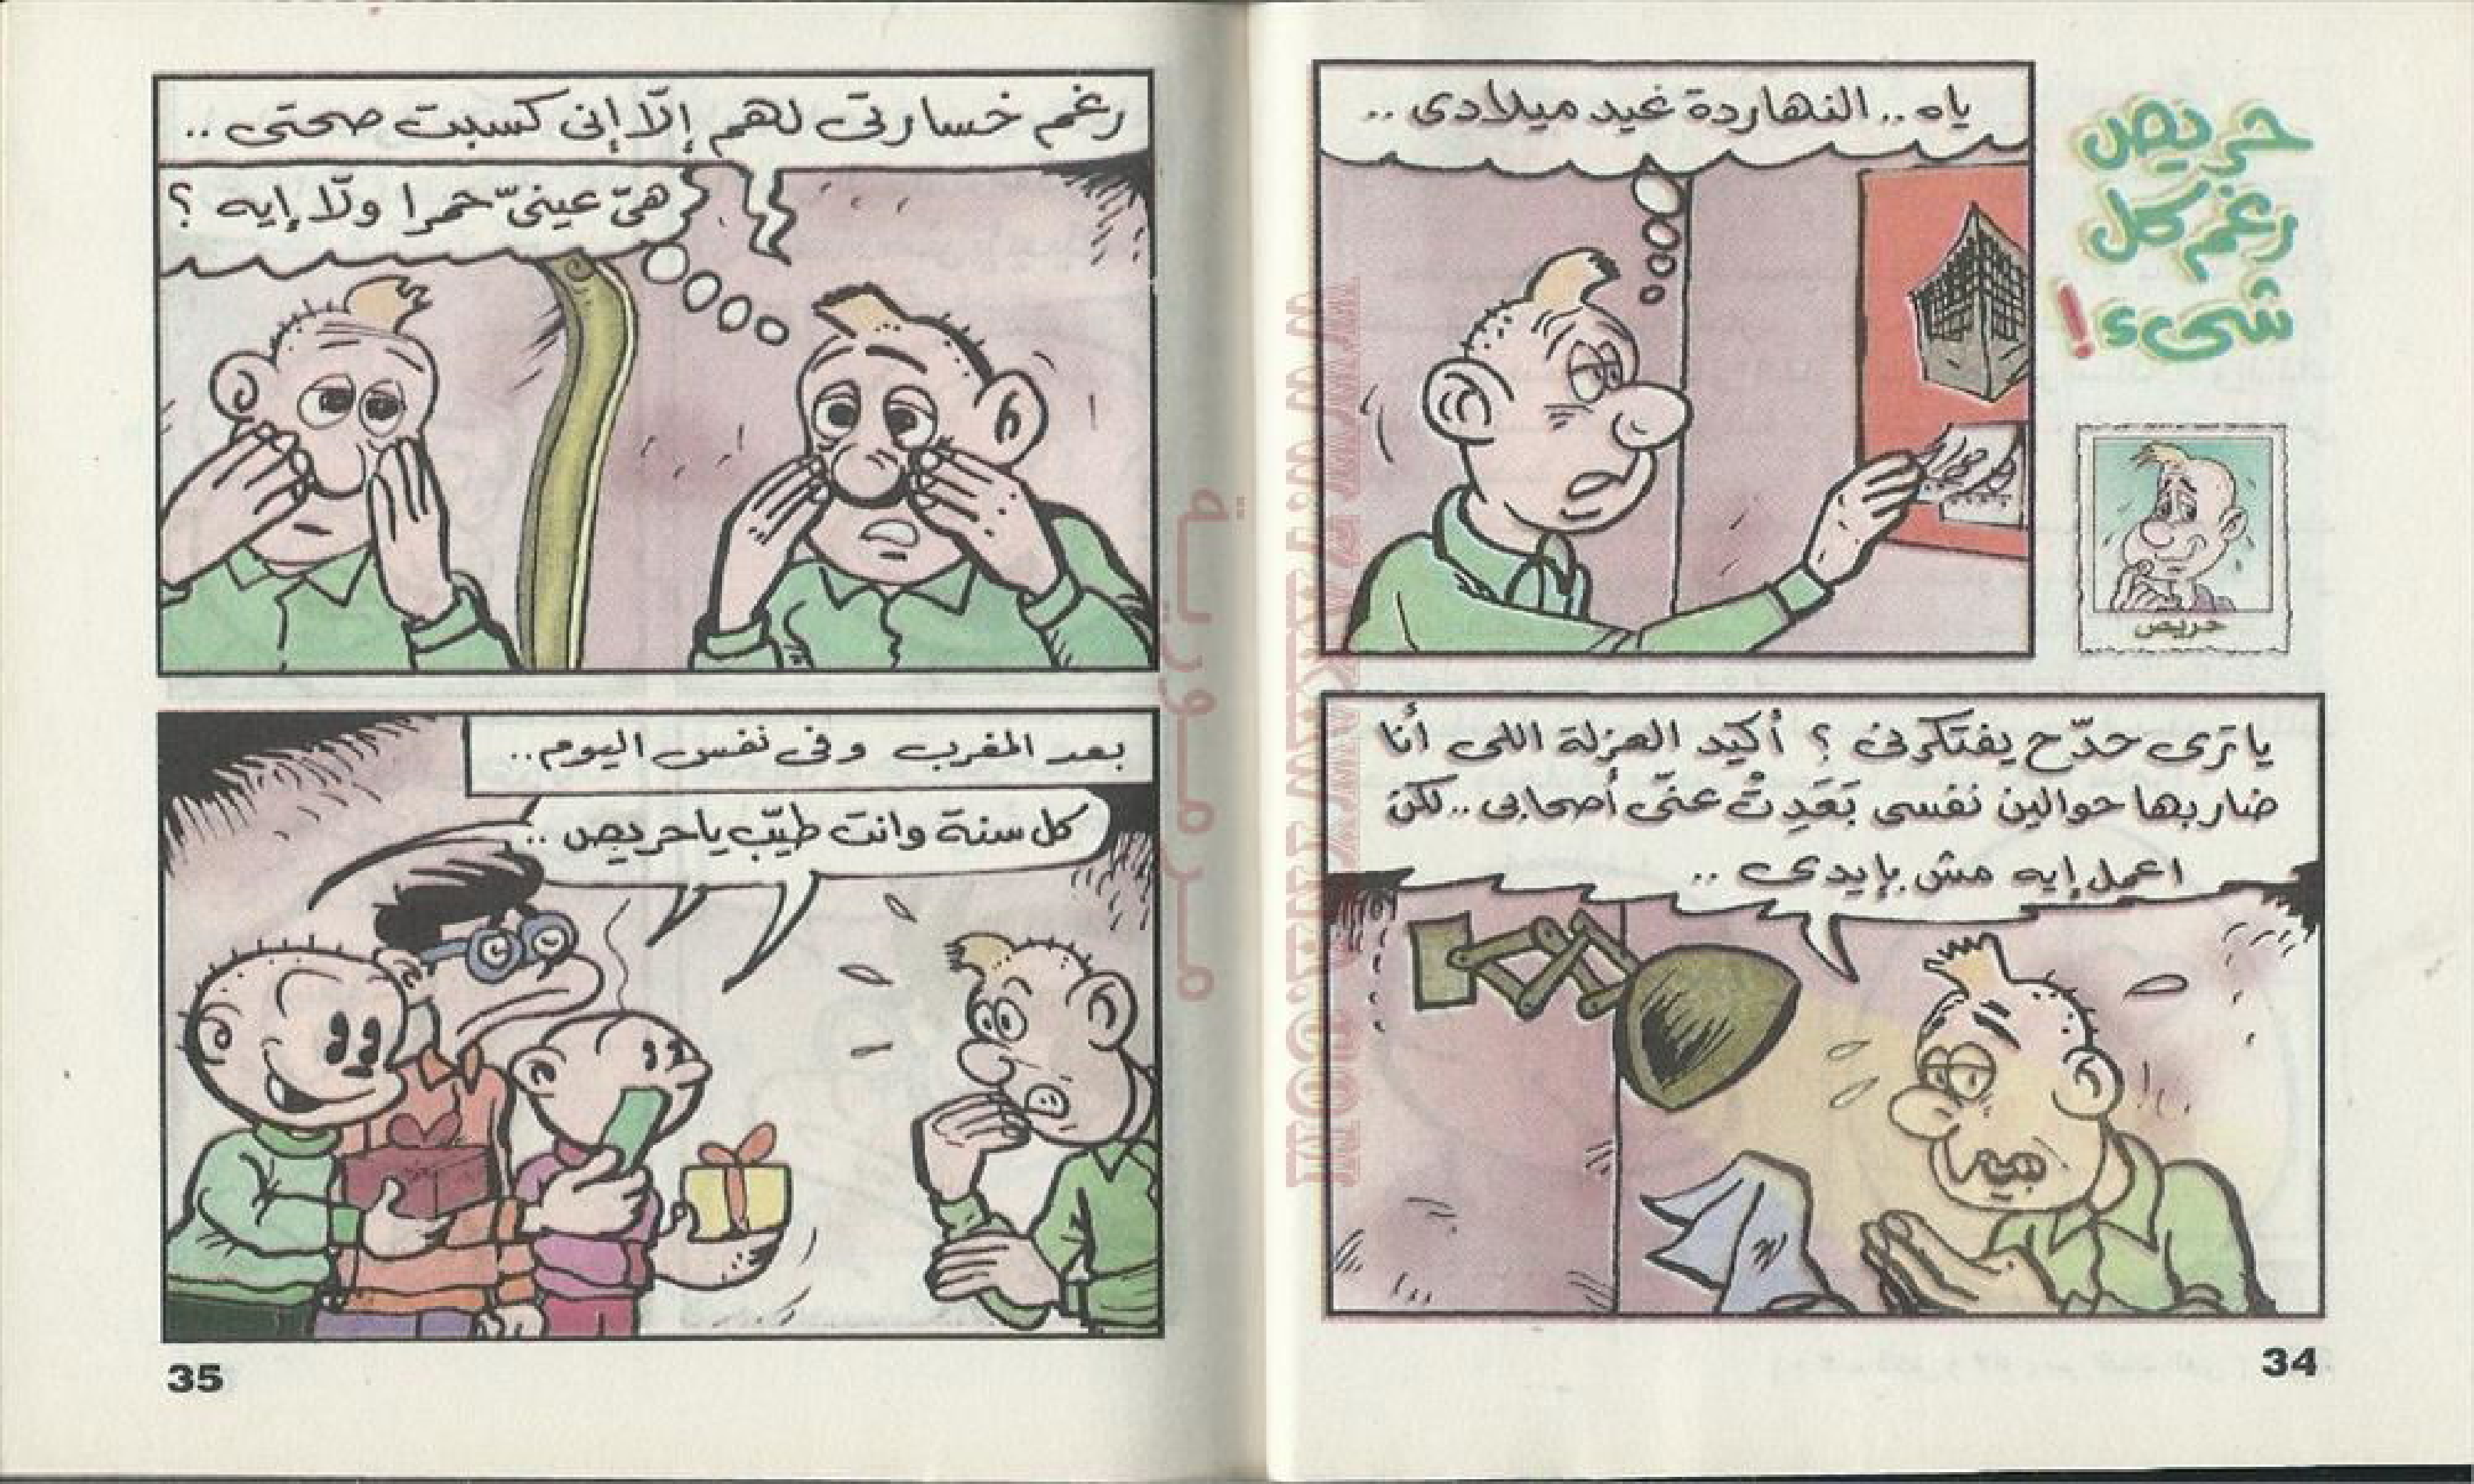 حريص
رغم كل
شىء!
حريص
ياه.. النهاردة عيد ميلادى..
يا ترى حدّح يفتكرنى؟ أكيد العزلة اللى أنا
ضاربها حوالين نفسى بَعَدِتْ عنّى أصحابى.. لكن
اعمل إيه مش بإيدى..
34
رغم خسارتى لهم إلّا إنى كسبت صحتى..
هىّ عينىّ حمرا ولّا إيه؟
بعد المغرب وفى نفس اليوم..
كل سنة وانت طيّب يا حريص..
35
مـرمـوريـة